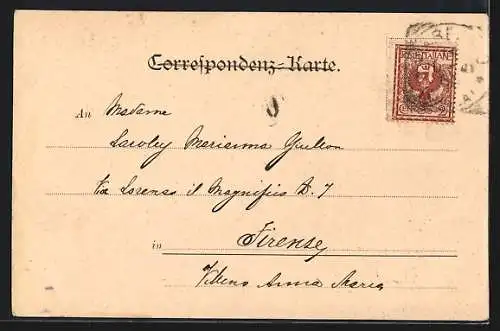 Correspondenz-Karte.
An Madame
Marianna
Via Lorenzo il Magnifico D. 7
in Firenze
Anna Maria